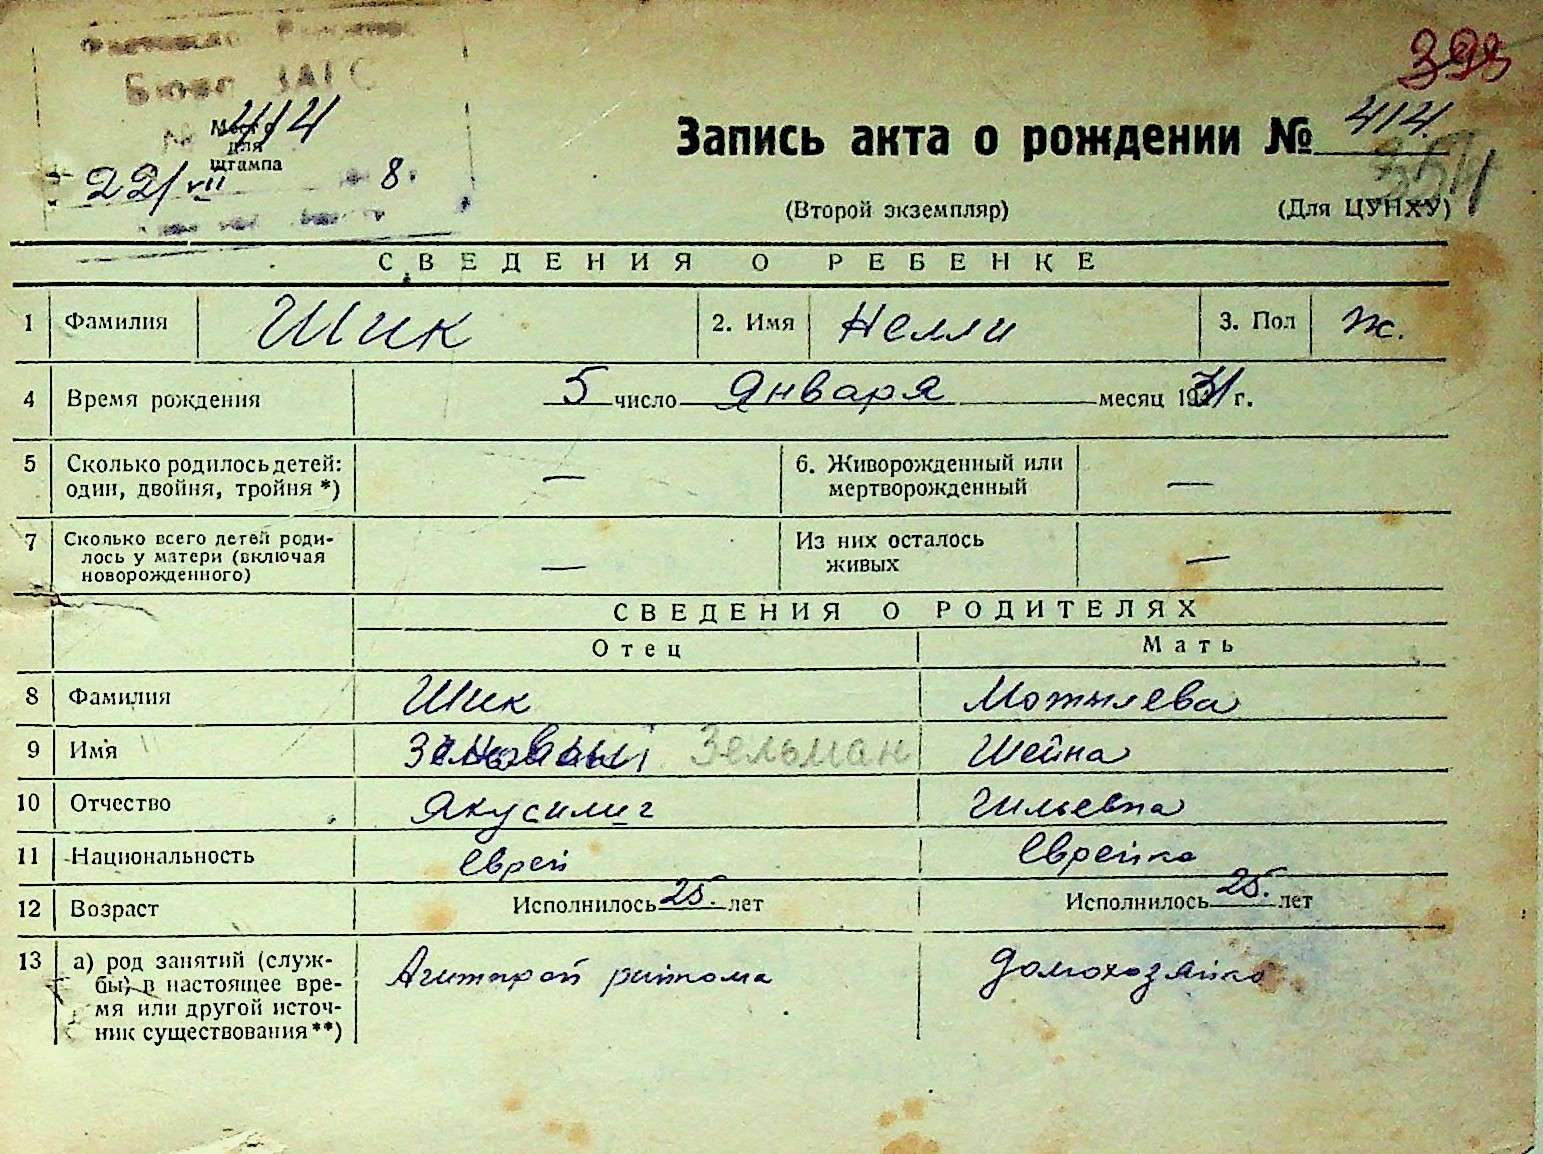 Бюро ЗАГС
№ 414
Место
для
штампа
22/VII 8.
398
Запись акта о рождении № 414.
354
(Второй экземпляр) (Для ЦУНХУ)
СВЕДЕНИЯ О РЕБЕНКЕ
1 Фамилия Шик 2. Имя Нелли 3. Пол Ж.
4 Время рождения 5 число Января месяц 1931 г.
5 Сколько родилось детей: — 6. Живорожденный или —
один, двойня, тройня *) мертворожденный
7 Сколько всего детей роди- — Из них осталось —
лось у матери (включая живых
новорожденного)
СВЕДЕНИЯ О РОДИТЕЛЯХ
Отец Мать
8 Фамилия Шик Мотылева
9 Имя Зельман Шейна
10 Отчество Гильевна
11 Национальность Еврей Еврейка
12 Возраст Исполнилось 25. лет Исполнилось 25. лет
13 а) род занятий (служ- райкома домохозяйка
бы) в настоящее вре-
мя или другой источ-
ник существования **)